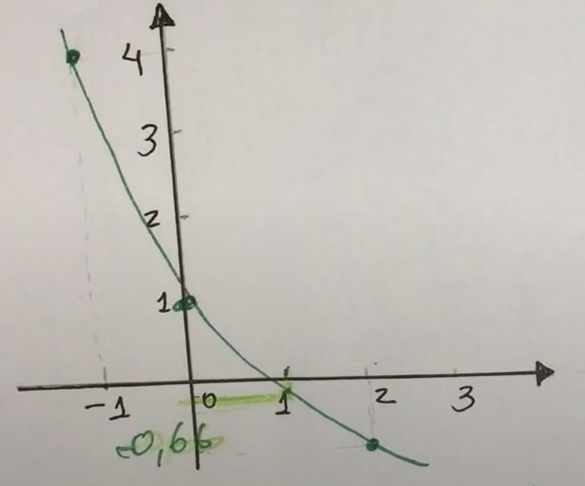 4
3
2
1
-1 0 1 2 3
-0,66